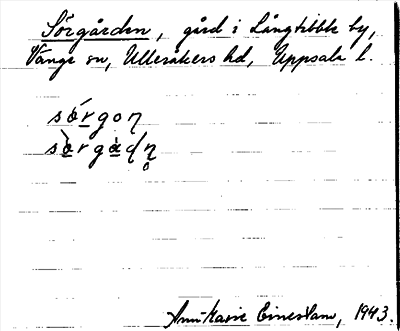 Sörgården, gård i Långtibble by,
Vänge sn, Ulleråkers hd, Uppsala l.
sørgoŋ
sørgàdn̥
Ann-Marie, 1943.